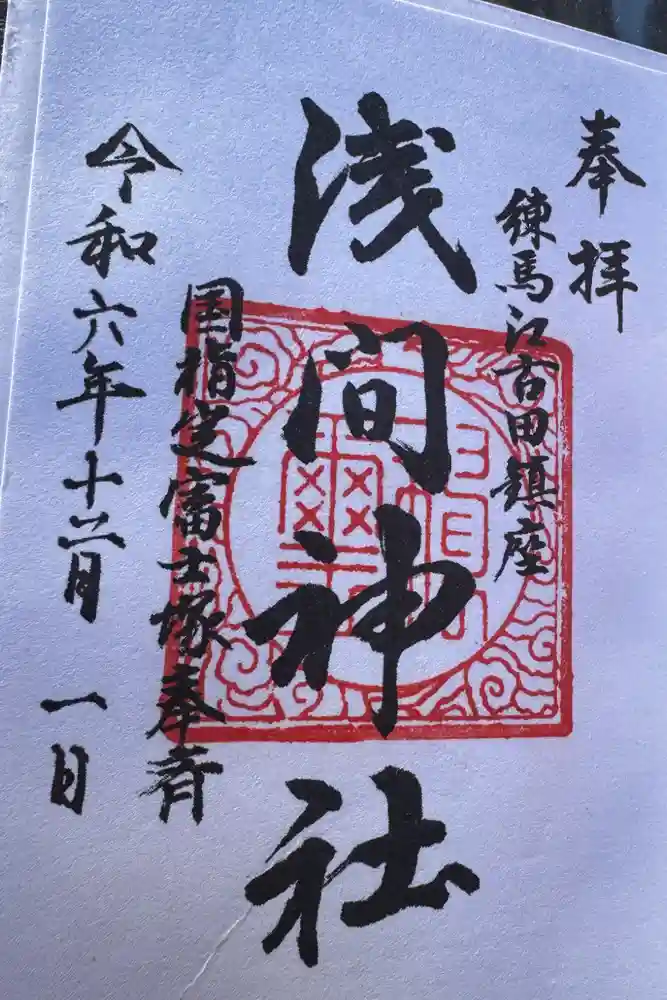 奉拝
練馬江古田鎮座
浅間神社
国指定富士塚奉斉
令和六年十二月一日